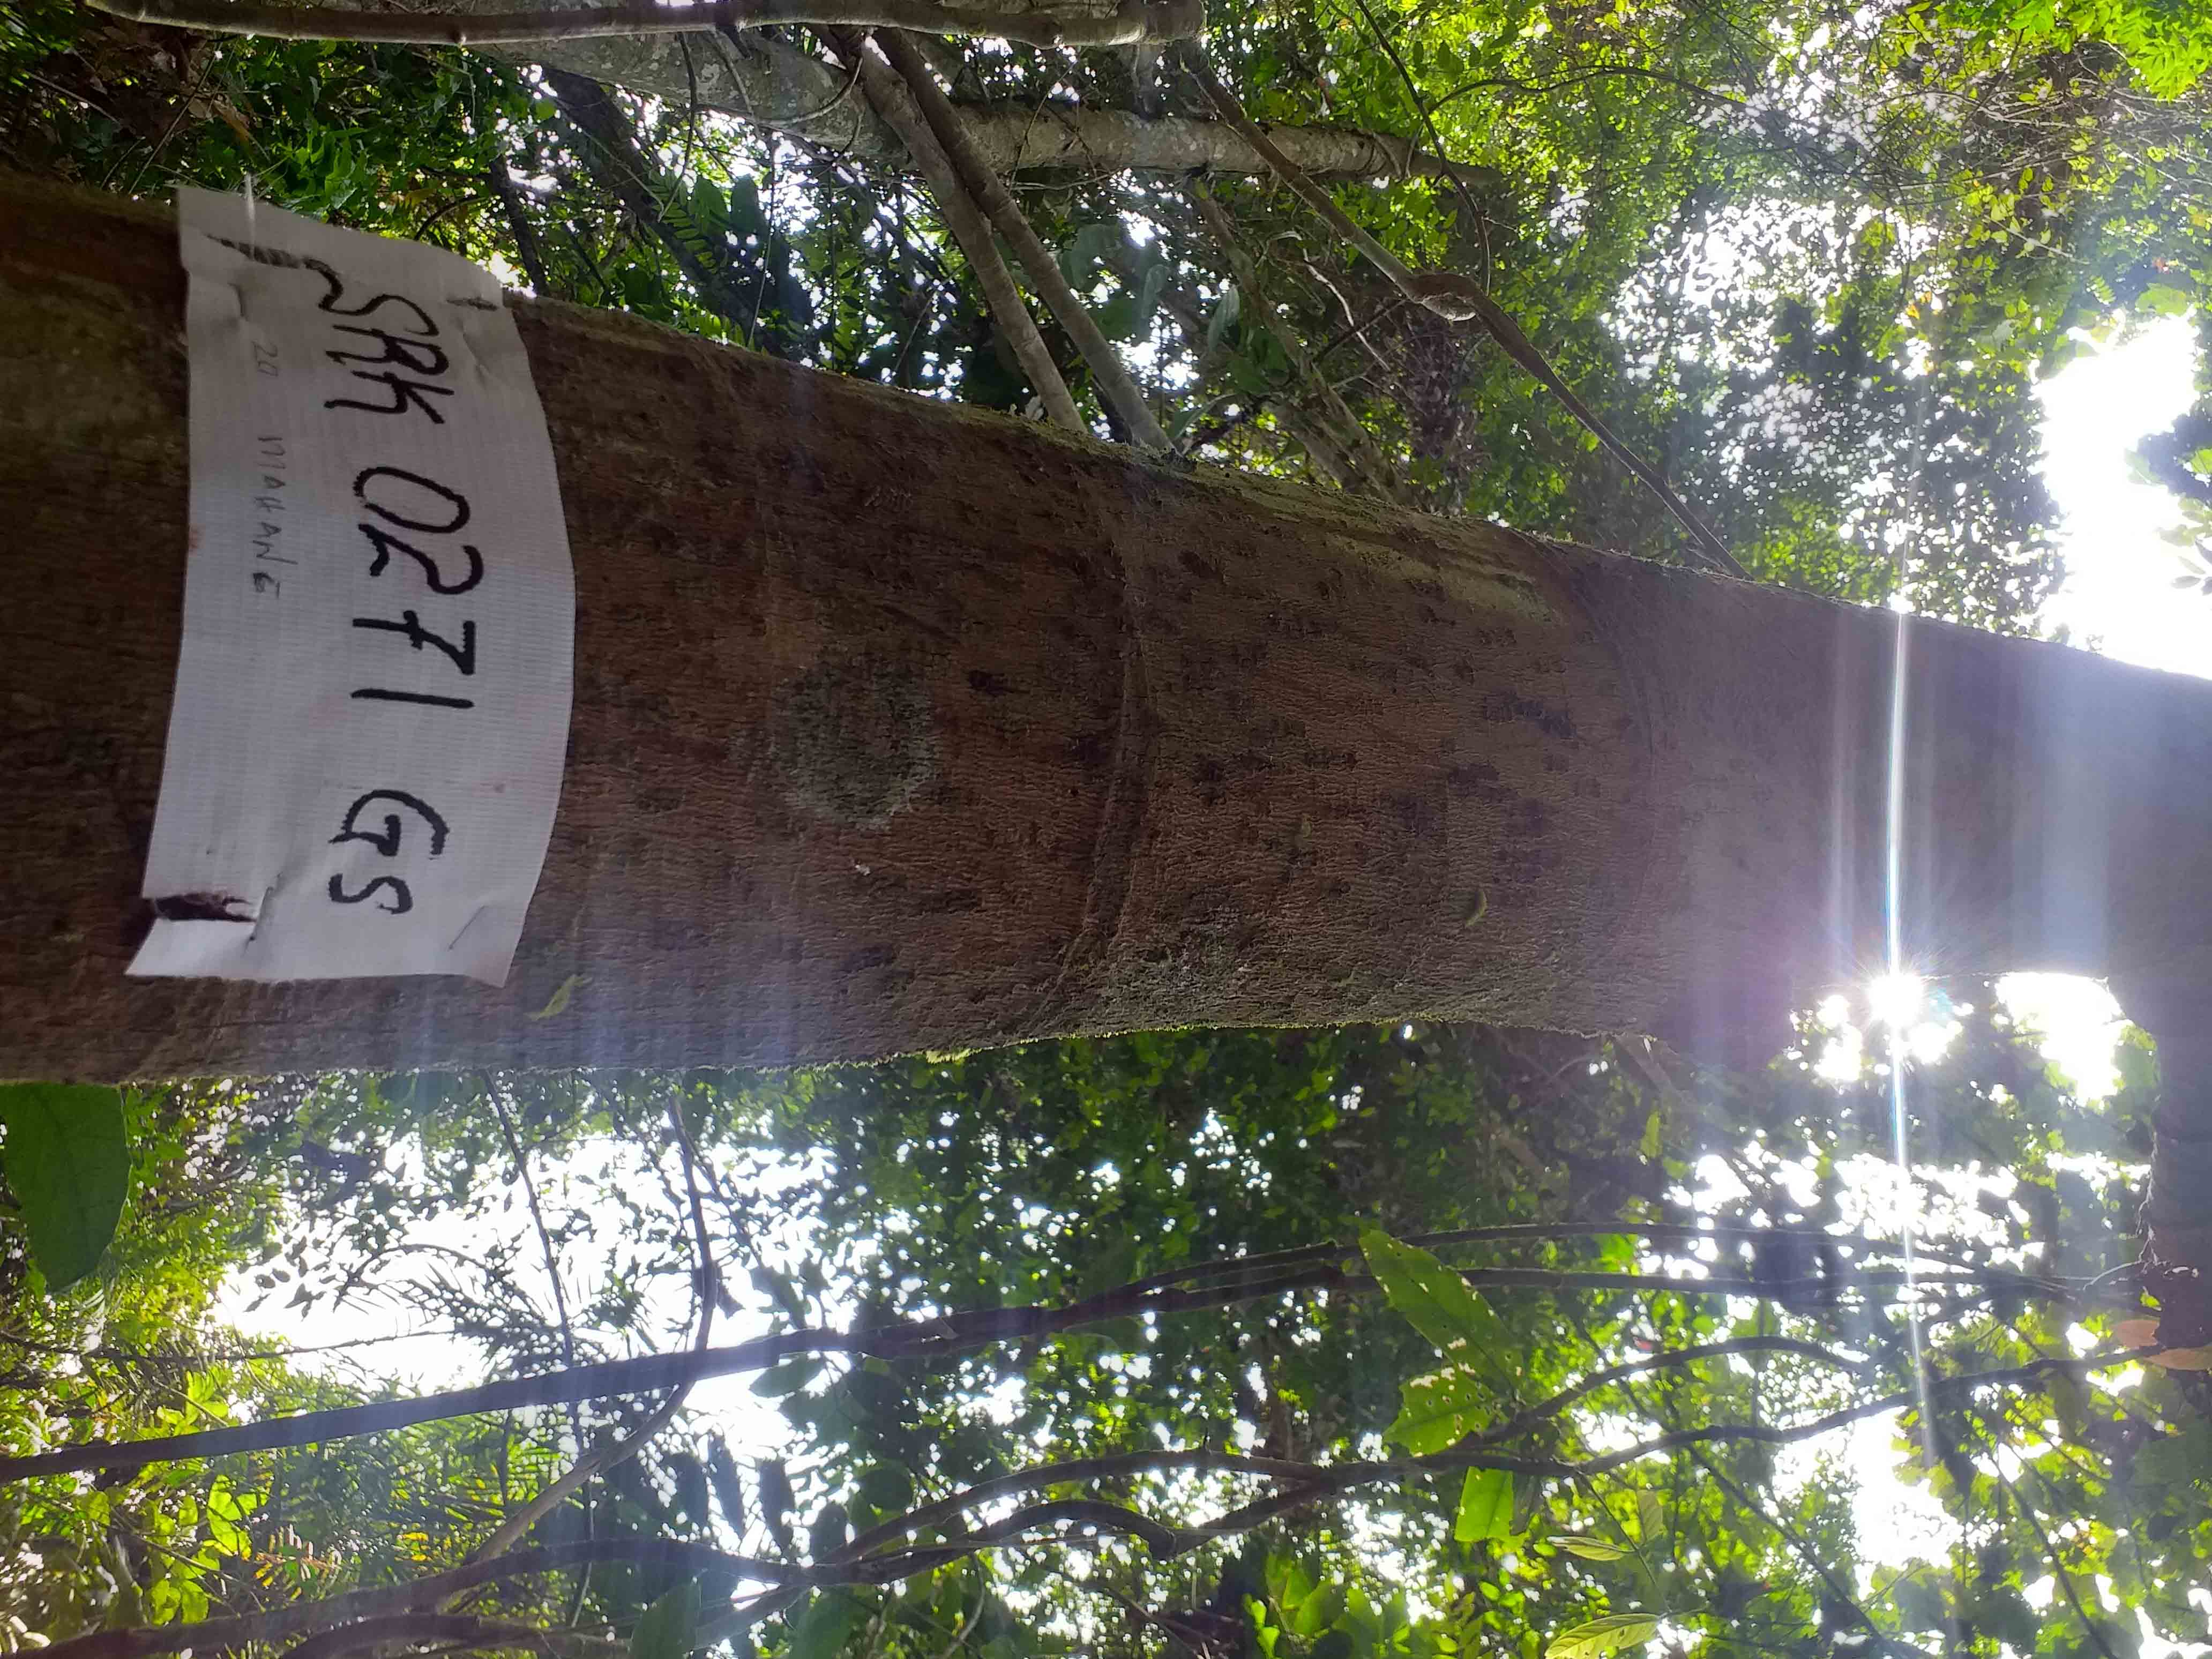 SRK 0271 GS
20 MAHANG